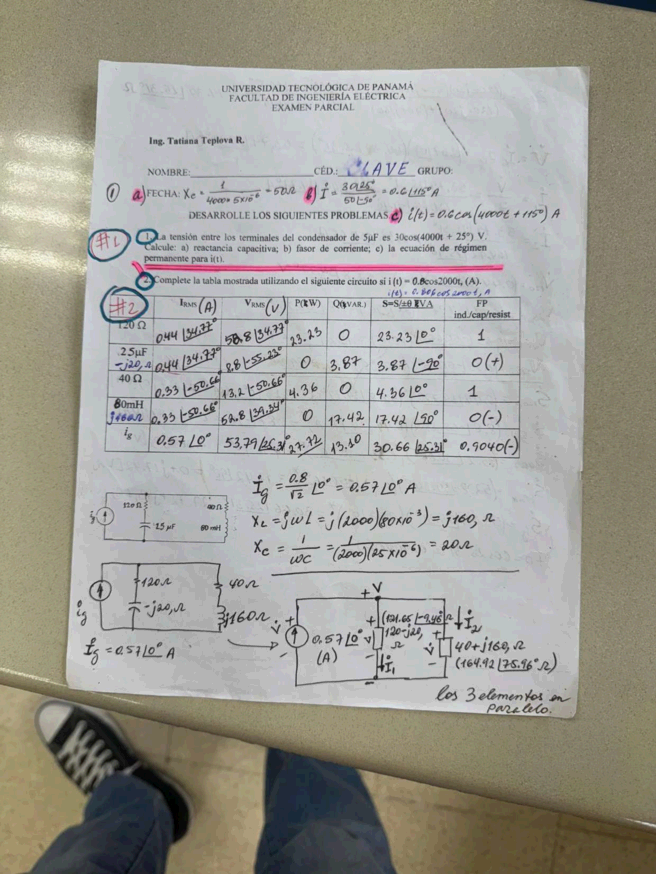 UNIVERSIDAD TECNOLÓGICA DE PANAMÁ
FACULTAD DE INGENIERÍA ELÉCTRICA
EXAMEN PARCIAL
Ing. Tatiana Teplova R.
NOMBRE: CÉD.: CLAVE GRUPO:
① a) FECHA: Xc = 1/(4000×5×10⁻⁶) = 50Ω b) İ = 30∠25°/50∠-90° = 0.6∠115° A
DESARROLLE LOS SIGUIENTES PROBLEMAS c) i(t) = 0.6cos(4000t + 115°) A
#1 1. La tensión entre los terminales del condensador de 5µF es 30cos(4000t + 25°) V.
Calcule: a) reactancia capacitiva; b) fasor de corriente; c) la ecuación de régimen
permanente para i(t).
2. Complete la tabla mostrada utilizando el siguiente circuito si i (t) = 0.8cos2000t, (A).
#2 IRMS (A) VRMS (V) P(W) Q(VAR) S=S/±θ VA FP
ind./cap/resist
120 Ω 0.44∠34.77° 52.8∠34.77° 23.23 0 23.23∠0° 1
25µF -j20,Ω 0.44∠34.77° 8.8∠-55.23° 0 3.87 3.87∠-90° 0(+)
40 Ω 0.33∠-50.66° 13.2∠-50.66° 4.36 0 4.36∠0° 1
80mH j160Ω 0.33∠-50.66° 52.8∠39.34° 0 17.42 17.42∠90° 0(-)
ig 0.57∠0° 53.79∠25.31° 27.72 13.10 30.66∠25.31° 0.9040(-)
İg = 0.8/√2 ∠0° = 0.57∠0° A
120 Ω 40 Ω
ig 25 µF 80 mH
XL = jωL = j(2000)(80×10⁻³) = j160, Ω
Xc = 1/ωC = 1/(2000)(25×10⁻⁶) = 20Ω
120Ω 40Ω
ig -j20,Ω j160Ω
İg = 0.57∠0° A
+V
0.57∠0° (A) (121.65∠-9.46° Ω) 120-j20, Ω İ1
İ2 40+j160, Ω (164.92∠75.96° Ω)
los 3 elementos en
paralelo.